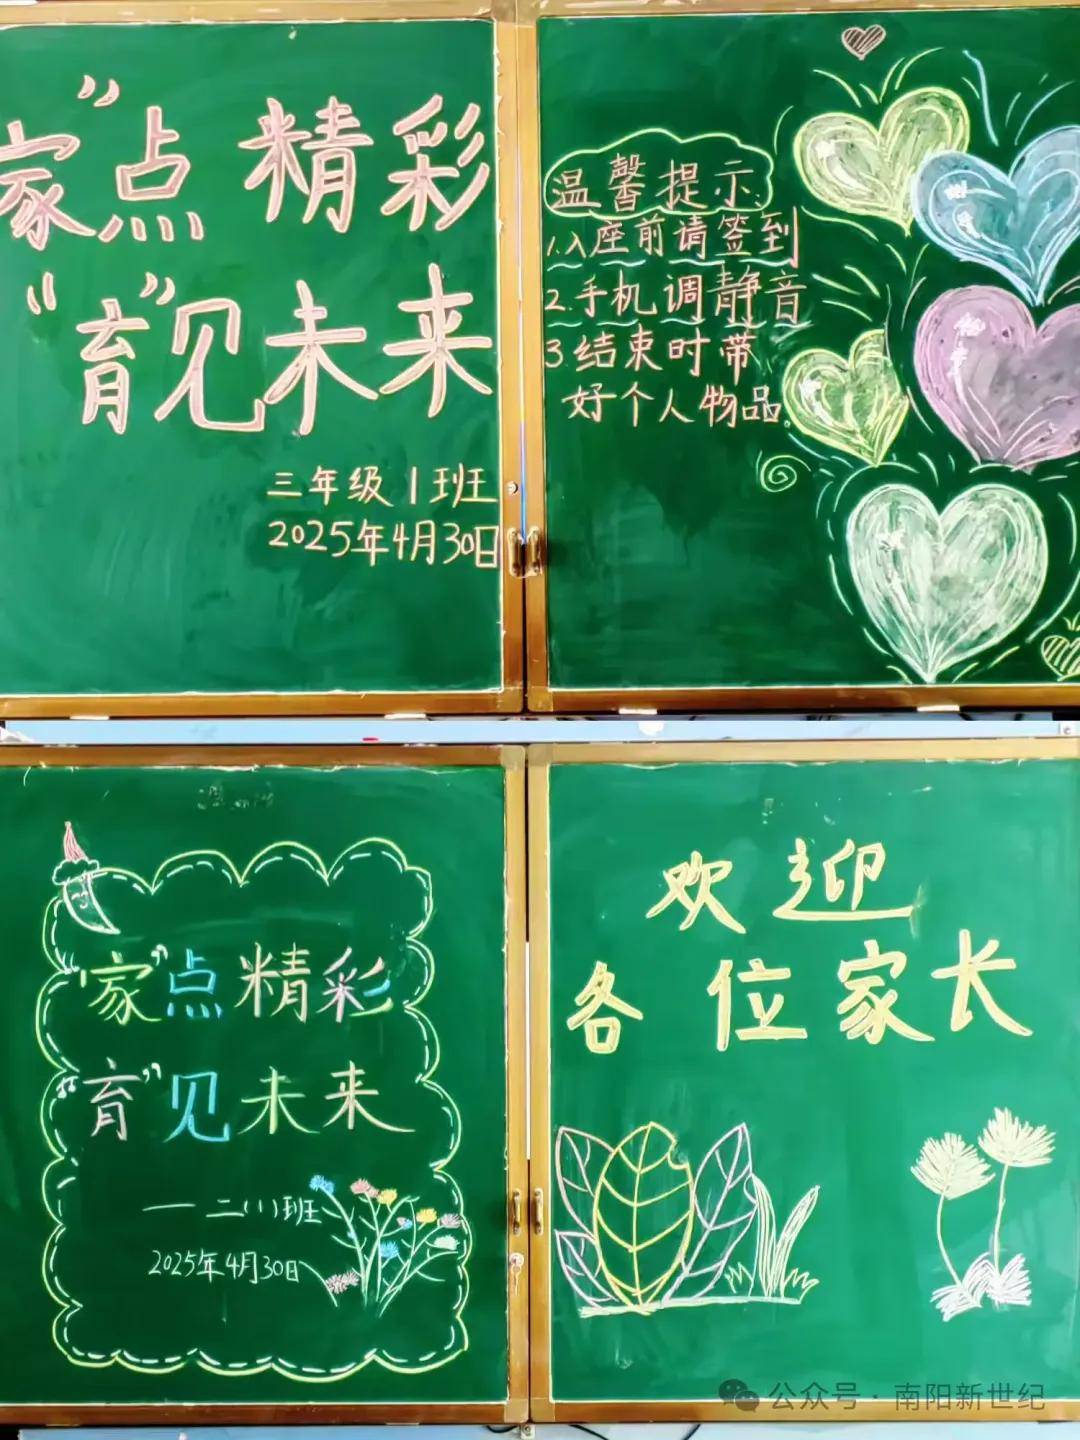 家”点精彩
“育”见未来
三年级1班
2025年4月30日
温馨提示:
1.入座前请签到
2.手机调静音
3.结束时带
好个人物品。
“家”点精彩
“育”见未来
——二(1)班
2025年4月30日
欢迎
各位家长
公众号·南阳新世纪